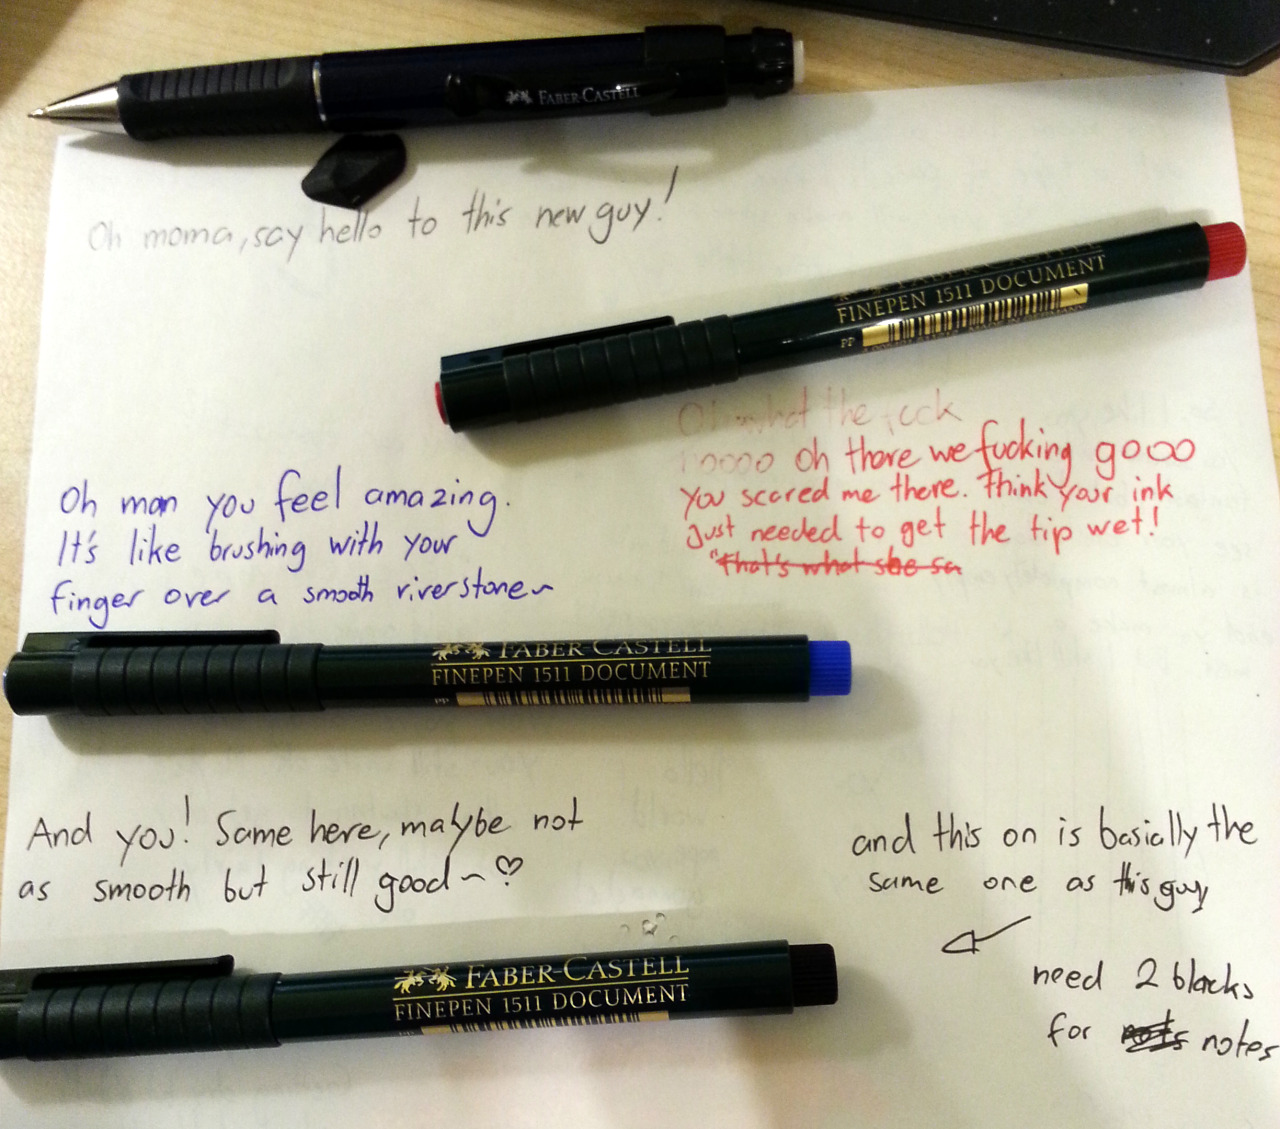 FABER-CASTELL
Oh moma, say hello to this new guy!
FABER-CASTELL
FINEPEN 1511 DOCUMENT
PP
Oh what the fcck
noooo oh there we fucking gooo
you scared me there. Think your ink
just needed to get the tip wet!
"That's what she sa
Oh man you feel amazing.
It's like brushing with your
finger over a smooth riverstone~
FABER-CASTELL
FINEPEN 1511 DOCUMENT
PP
And you! Same here, maybe not
as smooth but still good~♡
and this on is basially the
same one as this guy
need 2 blacks
for nots notes
FABER-CASTELL
FINEPEN 1511 DOCUMENT